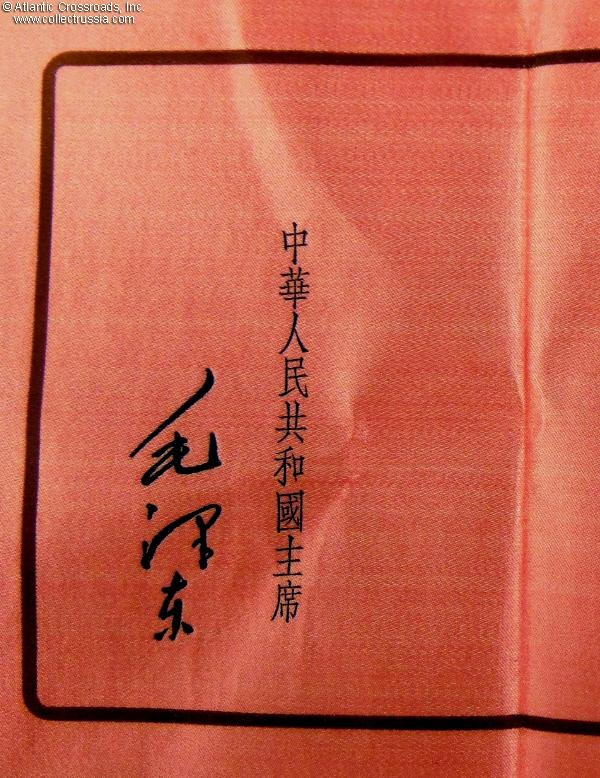 © Atlantic Crossroads, Inc.
www.collectrussia.com
中華人民共和國主席
毛泽东